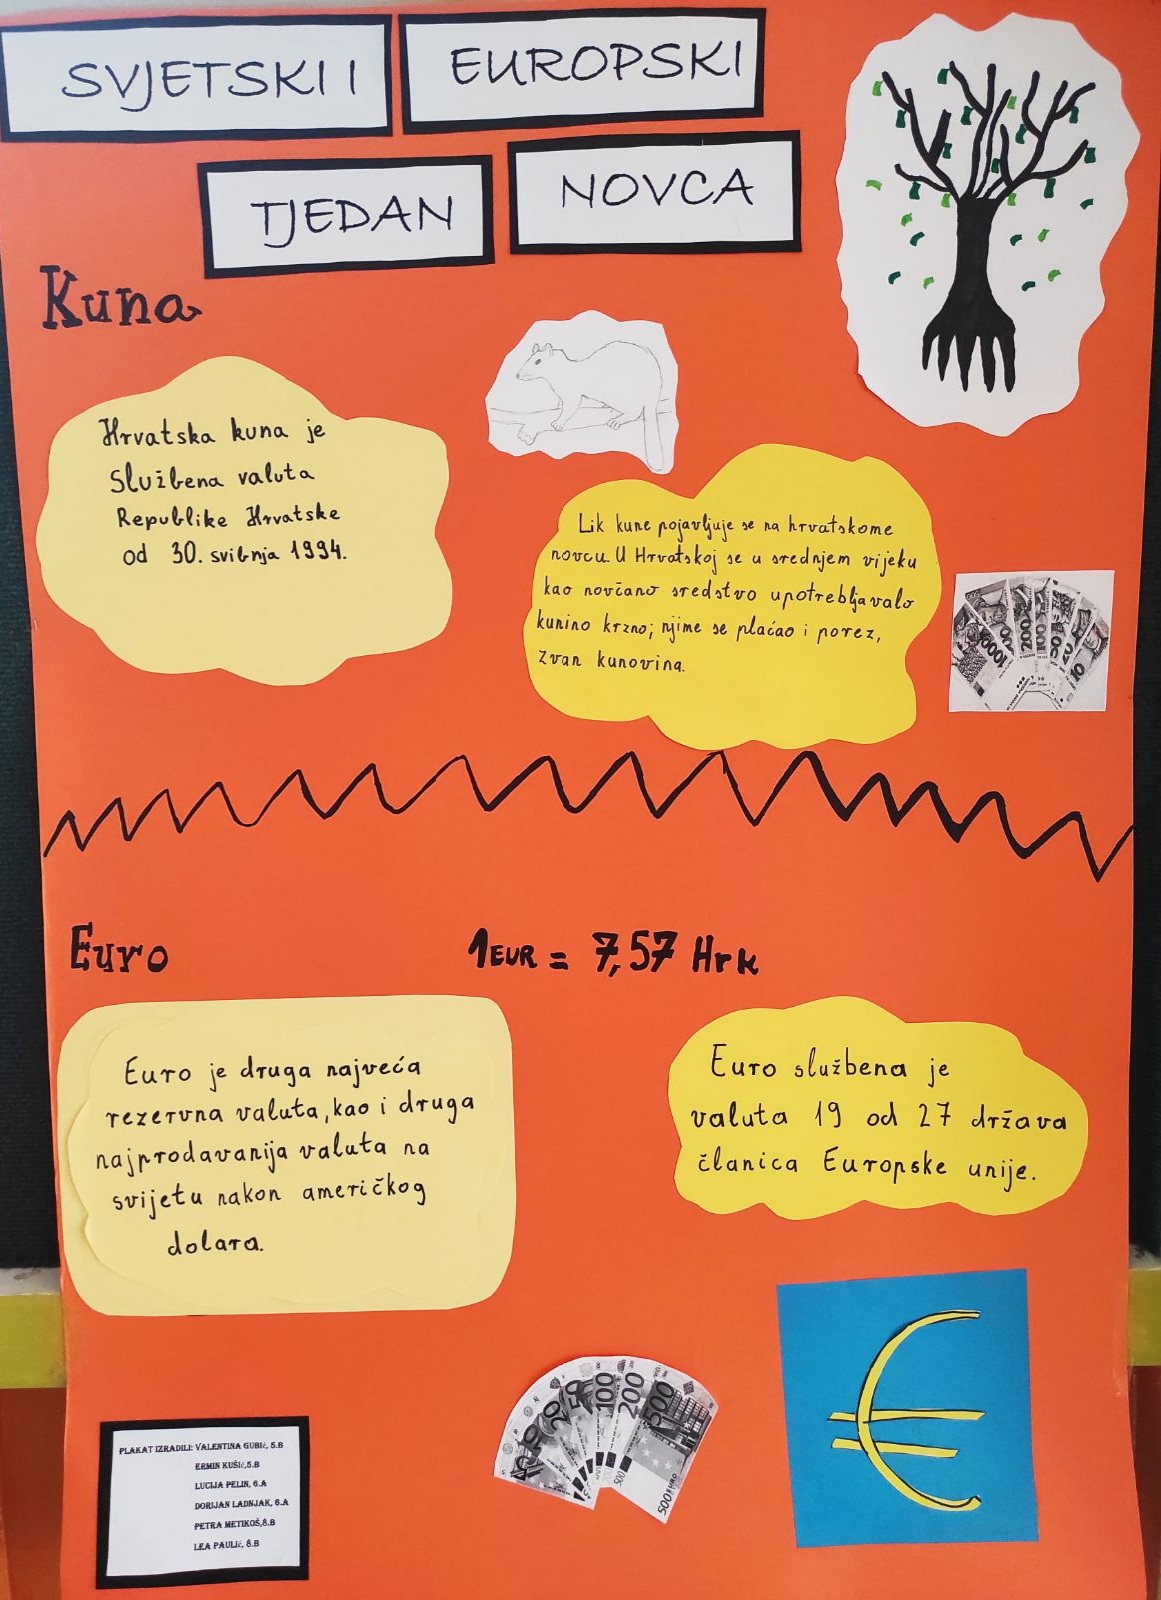 SVJETSKI I
EUROPSKI
TJEDAN
NOVCA
Kuna
Hrvatska kuna je
službena valuta
Republike Hrvatske
od 30. svibnja 1994.
Lik kune pojavljuje se na hrvatskome
novcu. U Hrvatskoj se u srednjem vijeku
kao novčano sredstvo upotrebljavalo
kunino krzno; njime se plaćao i porez,
zvan kunovina.
1000
200
100
50
20
10
Euro
1EUR = 7,57 Hrk
Euro je druga najveća
rezervna valuta, kao i druga
najprodavanija valuta na
svijetu nakon američkog
dolara.
Euro službena je
valuta 19 od 27 država
članica Europske unije.
5
10
20
50
100
200
500
500 EURO
€
PLAKAT IZRADILI: VALENTINA GUBIĆ, 5.B
ERMIN KUŠIĆ,5.B
LUCIJA PELIN, 6.A
DORIJAN LADNJAK, 6.A
PETRA METIKOŠ,8.B
LEA PAULIĆ, 8.B